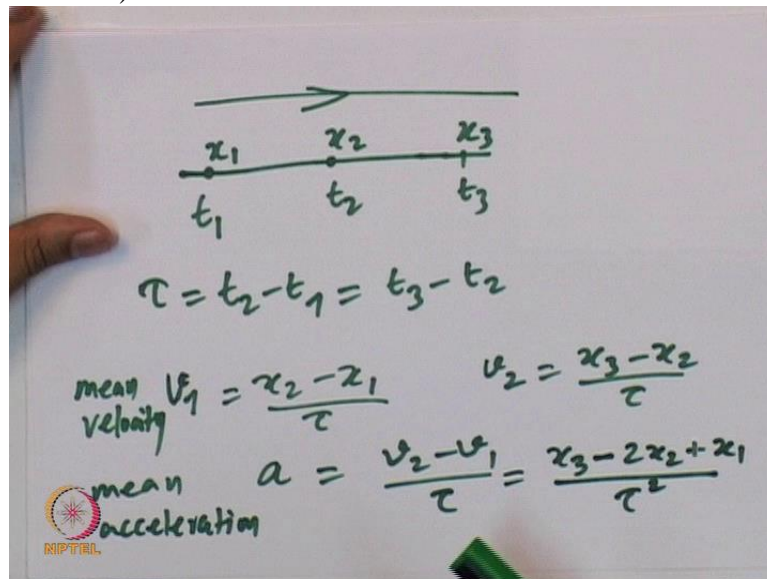 x₁ x₂ x₃
t₁ t₂ t₃
τ = t₂-t₁ = t₃-t₂
mean velocity v₁ = (x₂-x₁)/τ v₂ = (x₃-x₂)/τ
mean acceleration a = (v₂-v₁)/τ = (x₃-2x₂+x₁)/τ²
NPTEL